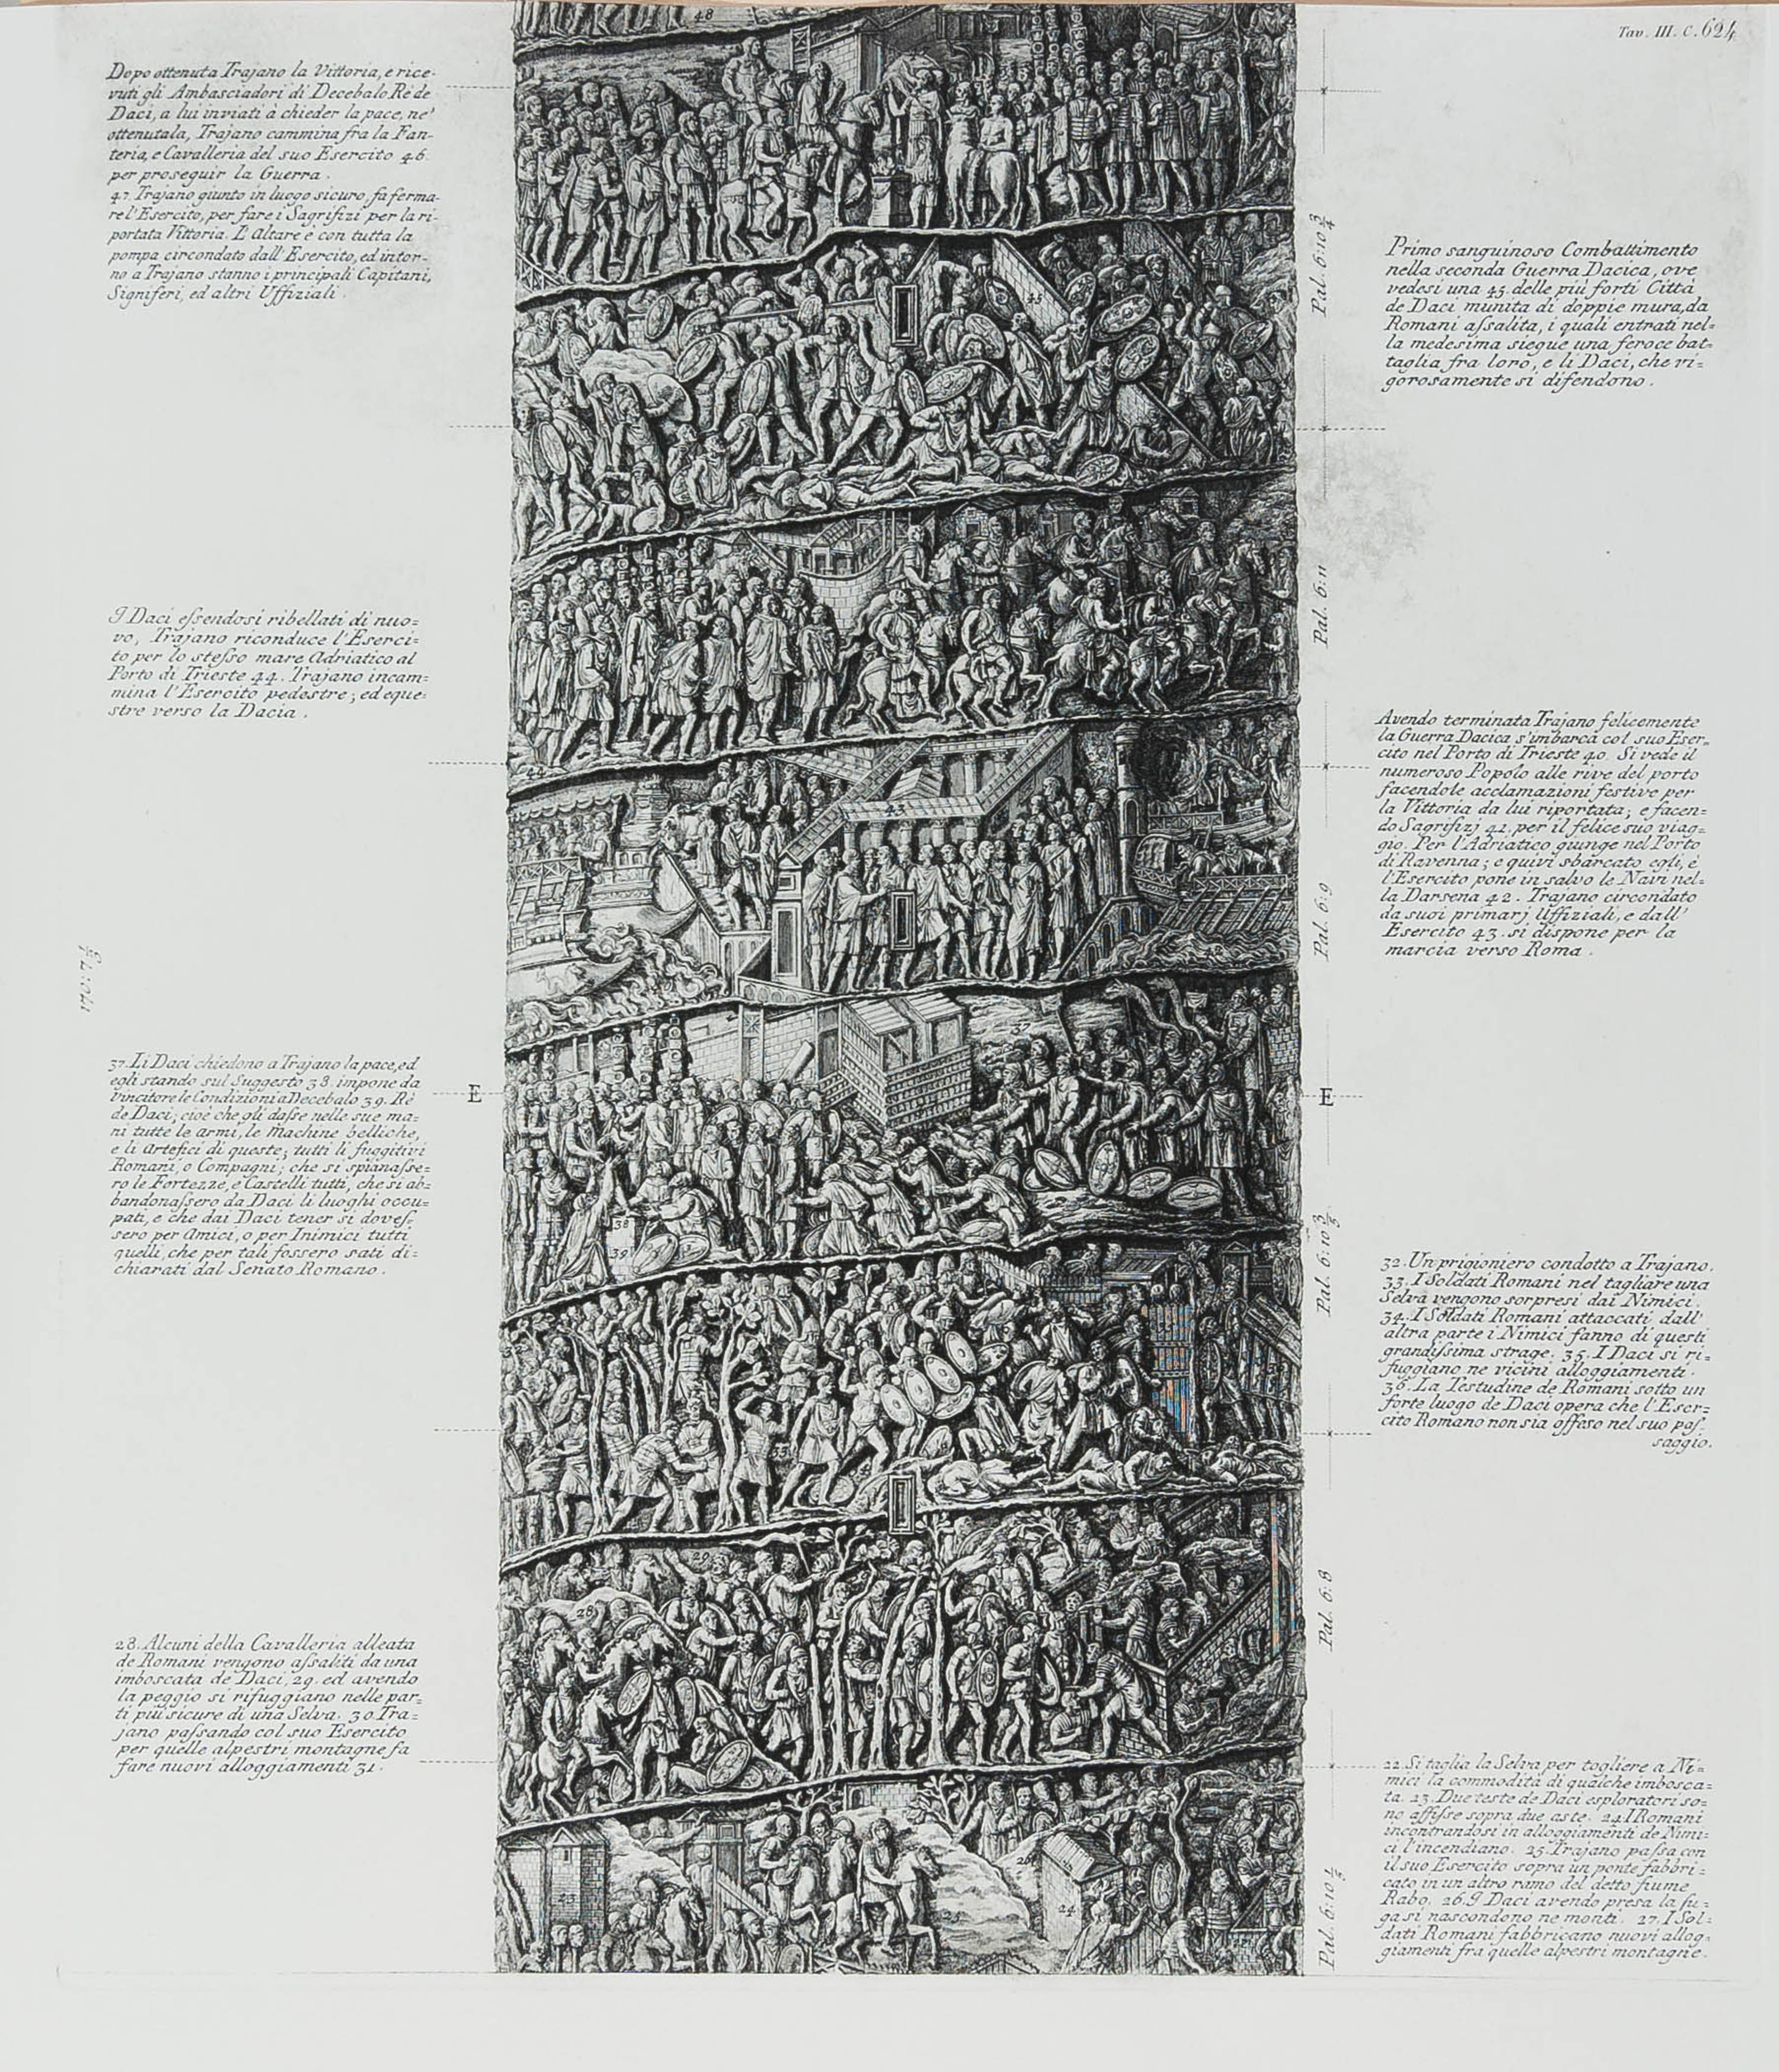 Tav. III. C. 624
Dopo ottenuta Trajano la Vittoria, e rice-
vuti gli Ambasciadori di Decebalo Rè de
Daci, a lui inviati à chieder la pace, ne'
ottenutala, Trajano cammina fra la Fan-
teria, e Cavalleria del suo Esercito 46.
per proseguir la Guerra.
47. Trajano giunto in luogo sicuro, fa ferma-
re l'Esercito, per fare i Sagrifizi per la ri-
portata Vittoria. L'Altare è con tutta la
pompa circondato dall'Esercito, ed intor-
no a Trajano stanno i principali Capitani,
Signiferi, ed altri Uffiziali.
Primo sanguinoso Combattimento
nella seconda Guerra Dacica, ove
vedesi una 45. delle più forti Città
de Daci munita di doppie mura, da
Romani assalita, i quali entrati nel=
la medesima siegue una feroce bat=
taglia fra loro, e li Daci, che ri=
gorosamente si difendono.
I Daci essendosi ribellati di nuo=
vo, Trajano riconduce l'Eserci=
to per lo stesso mare Adriatico al
Porto di Trieste 44. Trajano incam=
mina l'Esercito pedestre, ed eque=
stre verso la Dacia.
Avendo terminata Trajano felicemente
la Guerra Dacica s'imbarca col suo Eser=
cito nel Porto di Trieste 40. Si vede il
numeroso Popolo alle rive del porto
facendole acclamazioni festive per
la Vittoria da lui riportata; e facen=
do Sagrifizj 41. per il felice suo viag=
gio. Per l'Adriatico giunge nel Porto
di Ravenna; e quivi sbarcato egli, è
l'Esercito pone in salvo le Navi nel=
la Darsena 42. Trajano circondato
da suoi primarj Uffiziali, e dall'
Esercito 43. si dispone per la
marcia verso Roma.
37. Li Daci chiedono a Trajano la pace, ed
egli stando sul Suggesto 38. impone da
Vincitore le Condizioni a Decebalo 39. Rè
de Daci; cioè che gli dasse nelle sue ma=
ni tutte le armi, le Machine belliche,
e li Artefici di queste; tutti li fuggitivi
Romani, o Compagni; che si spianasse=
ro le Fortezze, e Castelli tutti, che si ab=
bandonassero da Daci li luoghi occu=
pati, e che dai Daci tener si doves=
sero per Amici, o per Inimici tutti
quelli, che per tali fossero sati di=
chiarati dal Senato Romano.
32. Un prigioniero condotto a Trajano.
33. I Soldati Romani nel tagliare una
Selva vengono sorpresi dai Nimici.
34. I Soldati Romani attaccati dall'
altra parte i Nimici fanno di questi
grandissima strage. 35. I Daci si ri=
fuggiano ne vicini alloggiamenti.
36. La Testudine de Romani sotto un
forte luogo de Daci opera che l'Eser=
cito Romano non sia offeso nel suo pas=
saggio.
28. Alcuni della Cavalleria alleata
de Romani vengono assaliti da una
imboscata de Daci, 29. ed avendo
la peggio si rifuggiano nelle par=
ti più sicure di una Selva. 30. Tra=
jano passando col suo Esercito
per quelle alpestri montagne fa
fare nuovi alloggiamenti 31.
22. Si taglia la Selva per togliere a Ni=
mici la commodità di qualche imbosca=
ta. 23. Due teste de Daci esploratori so=
no affisse sopra due aste. 24. I Romani
incontrandosi in alloggiamenti de Nimi=
ci l'incendiano. 25. Trajano passa con
il suo Esercito sopra un ponte fabbri=
cato in un altro ramo del detto fiume
Rabo. 26. I Daci avendo presa la fu=
ga si nascondono ne monti. 27. I Sol=
dati Romani fabbricano nuovi allog=
giamenti fra quelle alpestri montagne.
Pal. 6:10 3/4
Pal. 6:11
Pal. 6:9
Pal. 6:10
Pal. 6:8
Pal. 6:10 1/2
E
E
48
45
44
43
42
37
38
39
32
33
29
28
23
25
26
24